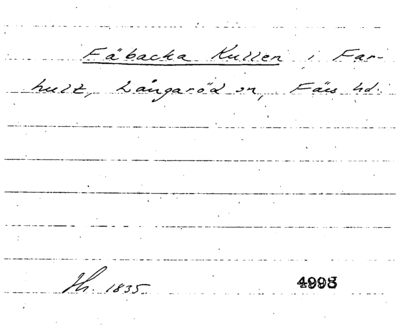 Fäbacka Kullen i Far-
hult, Långaröd sn, Färs hd.
Jh. 1835 4993